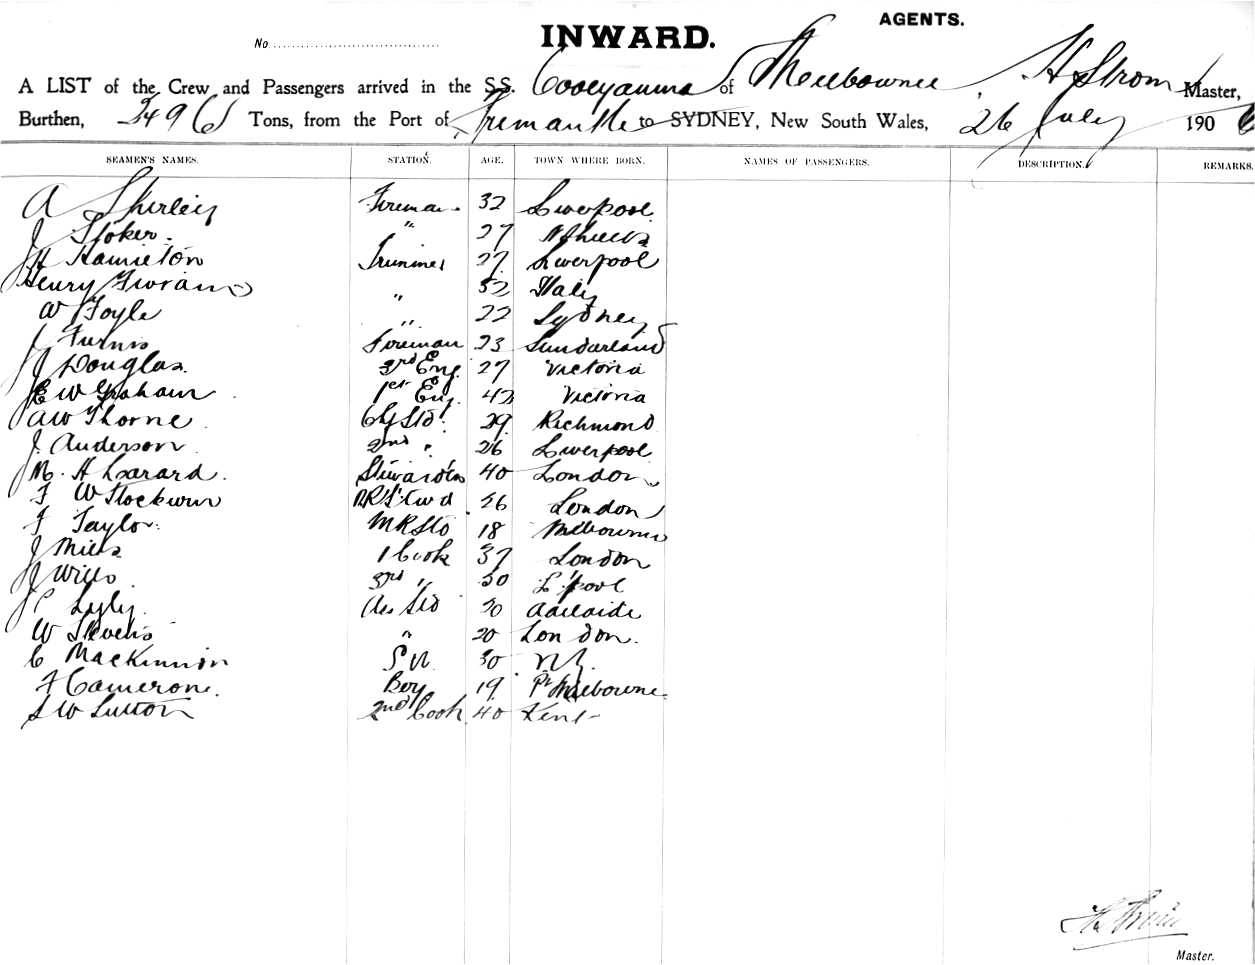 AGENTS.
No. INWARD.
A LIST of the Crew and Passengers arrived in the S.S. Cooeyanna of Melbourne, H Strom Master,
Burthen, 2496 Tons, from the Port of Fremantle to SYDNEY, New South Wales, 26 July 190
SEAMEN'S NAMES. STATION. AGE. TOWN WHERE BORN. NAMES OF PASSENGERS. DESCRIPTION. REMARKS.
A Shirley Fireman 32 Liverpool
J Stoker " 27 N Shields
H Hamilton Trimmer 27 Liverpool
Henry " 32 Italy
W Foyle " 22 Sydney
J Furnis Fireman 23 Sunderland
J Douglas 3rd Eng. 27 Victoria
E W Graham 1st Eng. 42 Victoria
A W Thorne Chf Std. 29 Richmond
J. Anderson 2nd " 26 Liverpool
M. H Stewardess 40 London
F W Stockwin 26 London
F Taylor MR Std 18 Melbourne
J Mills 1 Cook 37 London
J Wills 3rd " L'pool
J C Adelaide
W Stevens " 20 London.
C MacKinnon 30 N.Z.
F Camerone. Boy 19 Pt Melbourne
S W Sutton 2nd Cook 40 Kent
Master.